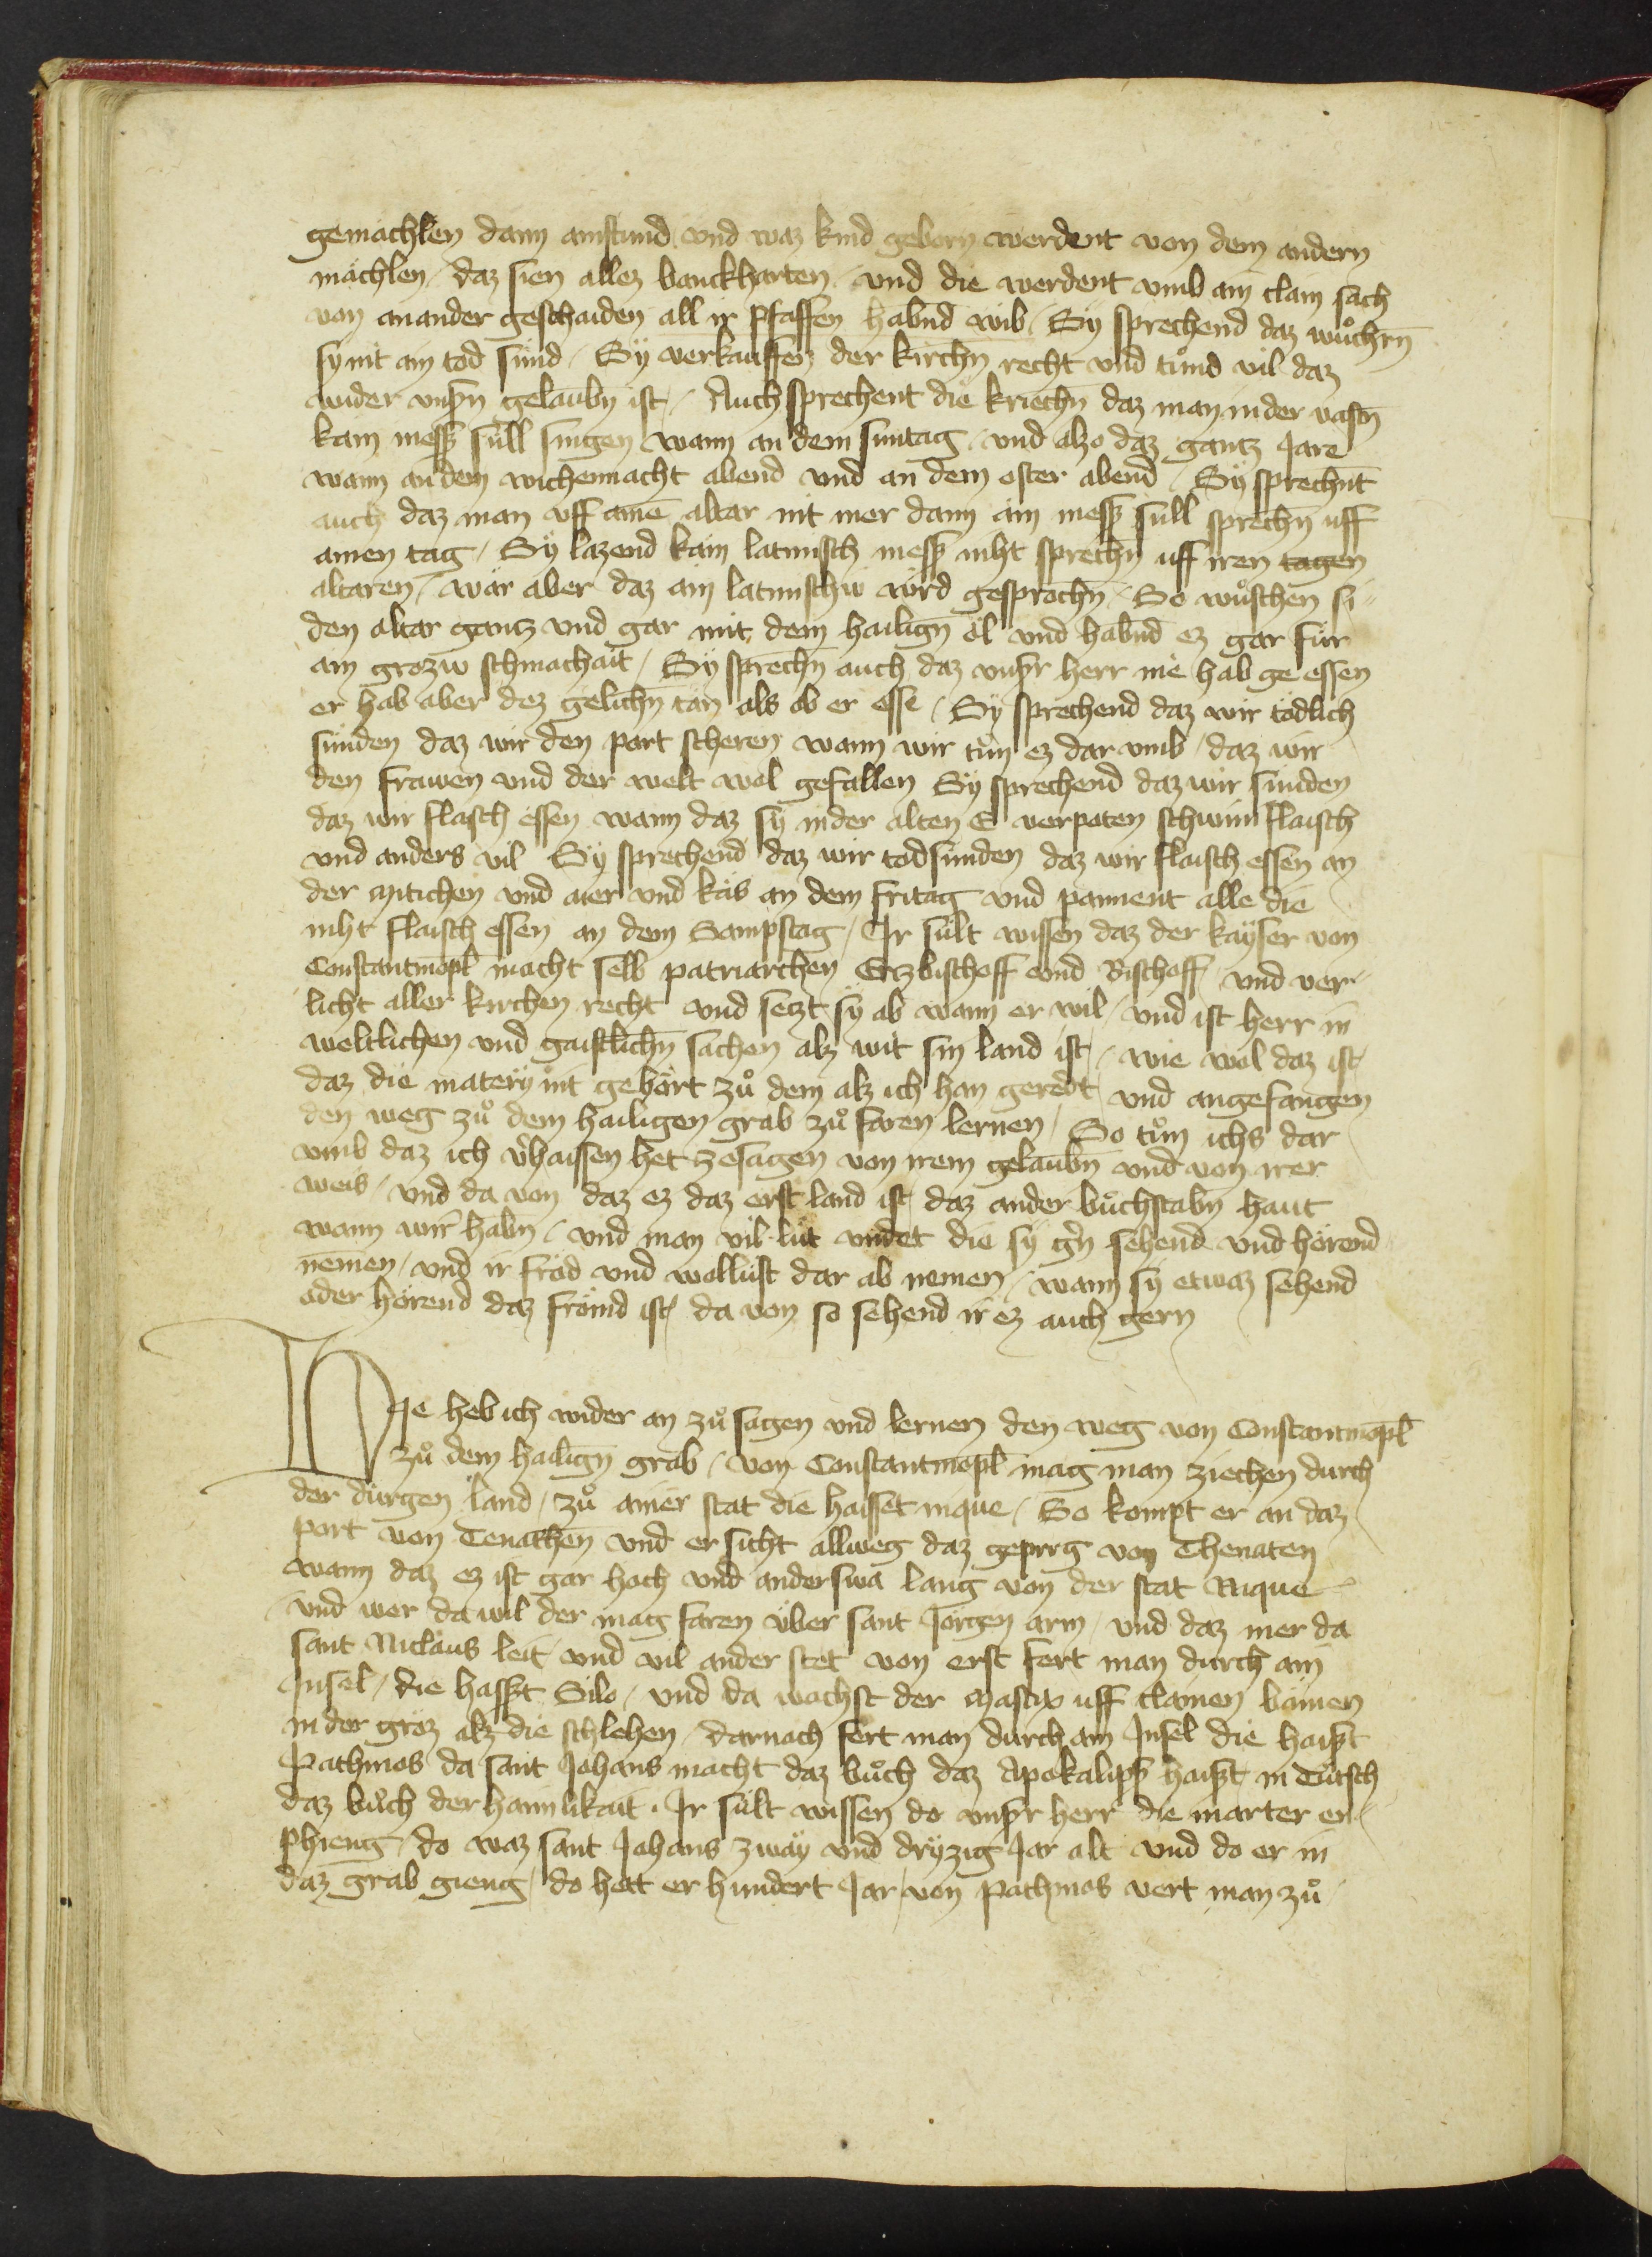 gemächlen dann ainstund vnd waz kind geborn werdent von dem andern
mächlen / daz sien allez banckharten / vnd die werdent vmb ain clain sach
von an ander geschaiden all ir pfaffen habnd wib / Sÿ sprechend daz wůchrn̄
sy nit ain tod sünd / Sÿ verkauffen der kirchn̄ recht vnd tůnd vil daz
wider vnßn gelaubn̄ ist / Auch sprechent die kriechn̄ daz man in der vastn̄
kain mesß süll singen wann an dem suntag / vnd alzo daz gantz Jare
wann an dem wichennacht abend vnd an dem oster abend / Sÿ sprechn̄t
auch daz man vff aine altar nit mer dann ain mesß süll sprechn̄ uff
ainen tag / Sÿ lazend kain latinisch mesß niht sprechn̄ uff iren tagen
altaren / wär aber daz ain latinischiu wird gesprochn̄ / So wůschen si
den altar gantz vnd gar mit dem hailign̄ öl vnd habnd ez gar für
ain groziu schmachait / Sÿ sprechn̄ auch daz vnßr herr nie hab ge essen
er hab aber dez gelichn̄ tan als ob er esse / Sÿ sprechend daz wir tödlich
sünden daz wir den part scheren wann wir tůn ez dar vmb / daz wir
den frawen vnd der welt wol gefallen Sÿ sprechend daz wir sünden
daz wir flaisch essen wann daz sÿ in der alten E verpoten schwinin flaisch
vnd anders vil Sÿ sprechend daz wir tod sünden daz wir flaisch essen an
der mitichen vnd aier vnd käs an dem fritag vnd pannent alle die
niht flaisch essen an dem Sampstag / Ir sült wissen daz der kaÿser von
Constantinopl̄ macht selb patriarchen Ertzbischoff vnd Bischoff / vnd ver
licht aller kirchen recht vnd setzt sÿ ab wann er wil / vnd ist herr in
weltlichen vnd gaistlichn̄ sachen alz wit sin land ist / wie wol daz ist
daz die materÿ nit gehört zů dem alz ich han geredt vnd angefangen
den weg zů dem hailigen grab zů faren lernen / So tůn ichs dar
vmb daz ich v̓haissen het ze sagen von irem gelaubn̄ vnd von irer
weis / vnd da von daz ez daz erst land ist / daz ander bůchstabn̄ haut
wann wir habn̄ / vnd man vil lüt vindet die sÿ gern sehend vnd hörend
nemen / vnd ir fröd vnd wollust dar ab nemen / wann sÿ etwaz sehend
oder hörend daz frömd ist / da von so sehend ir ez auch gern
Hie heb ich wider an zů sagen vnd lernen den weg von Constantinopl̄
zů dem hailign̄ grab / von Constantinopl̄ mag man ziechen durch
der dürgen land / zů ainer stat die haisset nique / So kompt er an daz
port von Tenathen vnd er sicht allweg daz geprrg von Thenaten
wann daz ez ist gar hoch vnd anderswa lang von der stat Nique
vnd wer da wil der mag faren über sant Jörgen arm / vnd daz mer da
sant Niclaus leit vnd vil ander stet von erst fert man durch ain
Insel / die haißt Silo / vnd da wachst der mastix uff clainen bäimen
in der gröz alz die schlehen / darnach fert man durch ain Insel die haißt
Pathmos da sant Johans macht daz bůch daz Apokalipß haißt in Tütsch
daz bůch der haimlikait . Ir sült wissen do vnßr herr die marter en
phieng / do waz sant Johans zwaÿ vnd drÿzig Jar alt vnd do er in
daz grab gieng / do hett er hundert Jar / von pathmos vert man zů